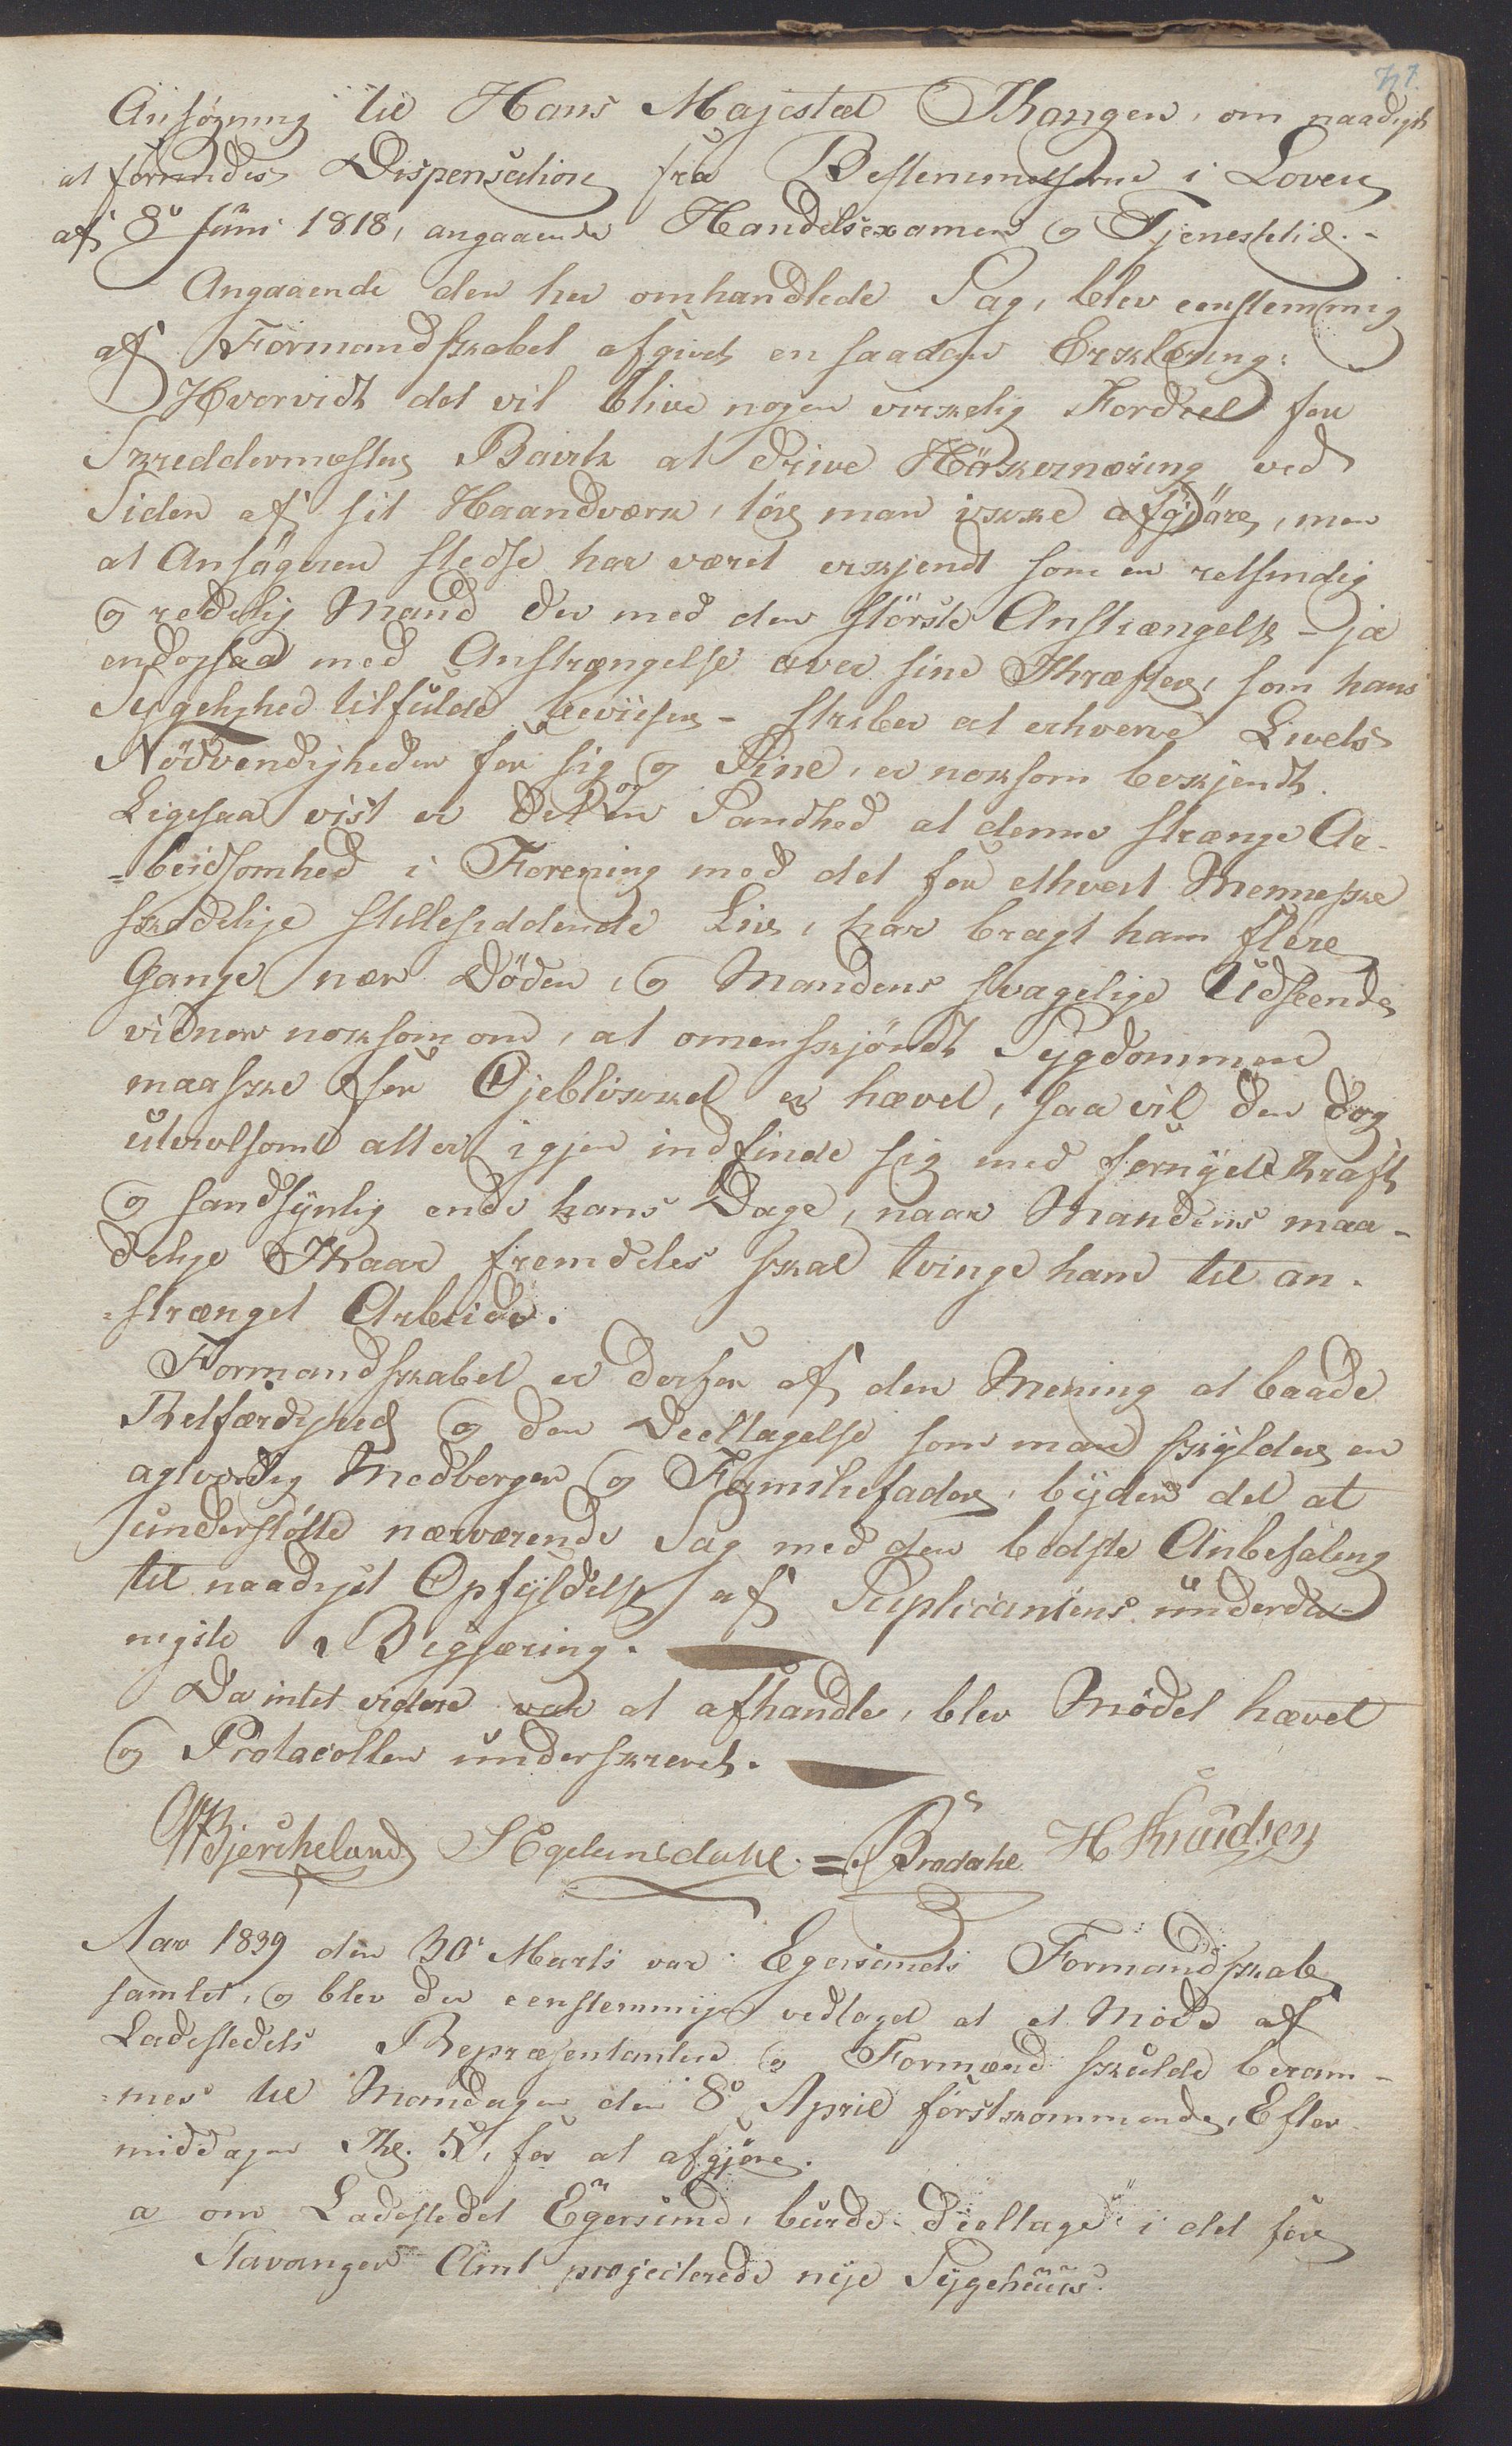 Ansøgning til Hans Majestæt Kongen, om naadigst
at forundes Dispensation fra Bestemmelserne i Loven
af 8de Juni 1818, angaaende Handelsexamen og Tjenestetid.-
Angaaende den her omhandlede Sag, blev eenstemmig
af Formandskabet afgivet en saadan Erklæring:
Hvorvidt det vil blive nogen virkelig Fordeel for
Skreddermester at drive Hökernæring ved
Siden af sit Haandværk, tör man ikke afgjöre, men
at Ansögeren stedse har været erkjendt som en retsindig
og redelig Mand der med den störste Anstrængelse - ja
endogsaa med Anstrængelse over sine Kræfter, som hans
Sygelighed tilfulde beviiser - stræber at erhverve Livets
Nödvendigheder for sig og Sine, er noksom bekjendt.
Ligesaa vist er det og en Sandhed at denne strænge Ar-
=beidsomhed i Forening med det for ethvert Menneske
skadelige stillesiddende Liv, har bragt ham flere
Gange nær Döden, og Mandens svagelige Udseende
vidner noksom om, at omenskjöndt Sygdommen
maaske for Öjeblikket er hævet, saa vil den dog
utvivlsomt atter igjen indfinde sig med fornyet Kraft
og sandsynlig ende hans Dage, naar Mandens maa-
delige Kaar fremdeles skal tvinge ham til an-
=strænget Arbeide.
Formandskabet er derfor af den Mening at baade
Retfærdighed og den Deeltagelse som man skylder en
agtværdig Medborger og Familiefader, byder det at
understötte nærværende Sag med den bedste Anbefaling
til naadigst Opfyldelse af Suplicantens underda-
nigste Begjæring.
Da intet videre var at afhandle, blev Mödet hævet
og Protocollen underskrevet.
Bjerchelund Egelunsdahl = Brodahl H Knudsen
Aar 1839 den 30' Marts var Egersunds Formandskab
samlet, og blev der eenstemmigen vedtaget at et Möde af
Ladestedets Repræsentanter og Formænd skulde beram-
=mes til Mandagen den 8de April förstkommende, Efter-
middagen Kl. 5, for at afgjöre.
a om Ladestedet Egersund, burde deeltage i det for
Stavanger Amt projecterede nye Sygehuus.